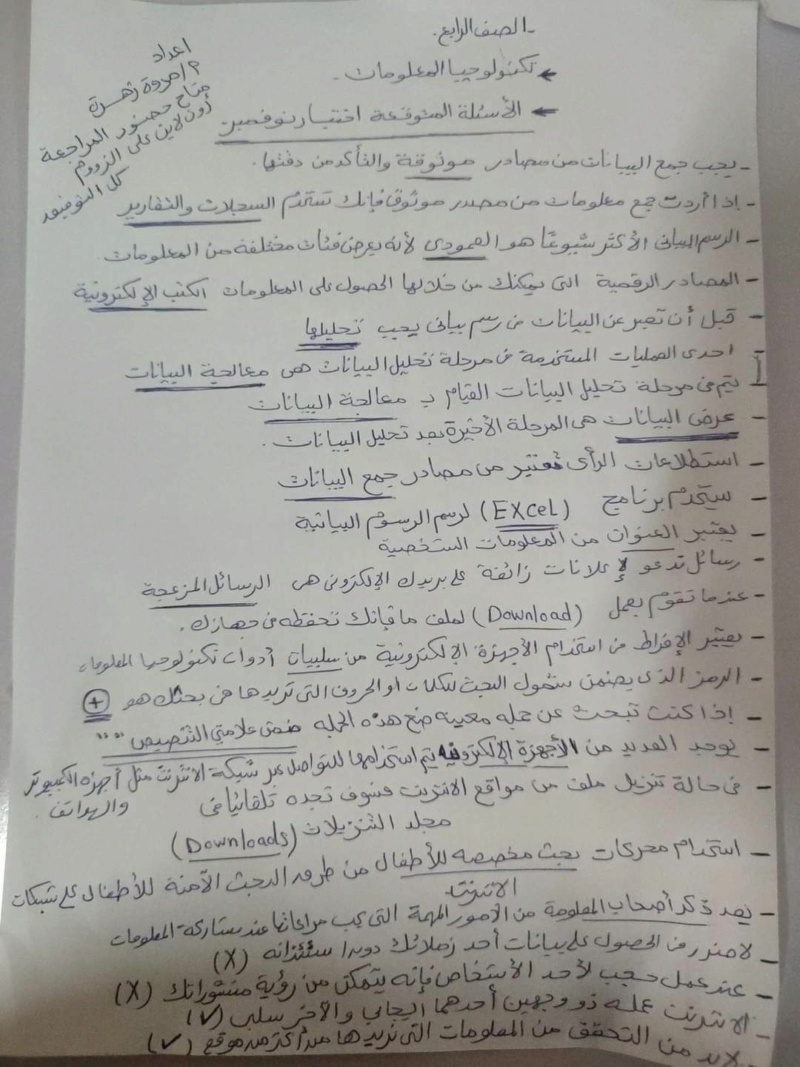 - الصف الرابع.
← تكنولوجيا المعلومات.
← الأسئلة المتوقعة اختبار نوفمبر
اعداد
م / مروة زهرة
متاح حضور المراجعة
أون لاين على الزووم
كل التوفيق
- يجب جمع البيانات من مصادر موثوقة والتأكد من دقتها.
- إذا أردت جمع معلومات من مصدر موثوق فإنك تستخدم السجلات والتقارير
- الرسم البيانى الأكثر شيوعًا هو العمودى لأنه يعرض فئات مختلفة من المعلومات.
- المصادر الرقمية التى يمكنك من خلالها الحصول على المعلومات الكتب الإلكترونية
- قبل أن تعبر عن البيانات فى رسم بيانى يجب تحليلها
احدى العمليات المستخدمة فى مرحلة تحليل البيانات هى معالجة البيانات
يتم فى مرحلة تحليل البيانات القيام بـ معالجة البيانات
- عرض البيانات هى المرحلة الأخيرة بعد تحليل البيانات.
- استطلاعات الرأى تعتبر من مصادر جمع البيانات
- يستخدم برنامج (EXCeL) لرسم الرسوم البيانية
- يعتبر العنوان من المعلومات الشخصية
- رسائل تدعو لإعلانات زائفة على بريدك الإلكترونى هى الرسائل المزعجة
- عندما تقوم بعمل (Download) لملف ما فإنك تحفظه فى جهازك.
- يعتبر الإفراط فى استخدام الأجهزة الإلكترونية من سلبيات أدوات تكنولوجيا المعلومات
- الرمز الذى يضمن شمول البحث للكلمات او الحروف التى تريدها فى بحثك هو (+)
- إذا كنت تبحث عن جمله معينه ضع هذه الجمله ضمن علامتي التنصيص " "
- يوجد العديد من الأجهزة الإلكترونية يتم استخدامها للتواصل عبر شبكة الانترنت مثل أجهزة الكمبيوتر
والهواتف.
- فى حالة تنزيل ملف من مواقع الانترنت فسوف تجده تلقائيا فى
مجلد التنزيلات (Downloads)
- استخدام محركات بحث مخصصه للأطفال من طرق البحث الآمنة للأطفال على شبكات
الانترنت
- يعد ذكر أصحاب المعلومة من الأمور المهمة التى يجب مراعاتها عند مشاركة المعلومات
- لا ضرر من الحصول على بيانات أحد زملائك دون استئذانه (X)
- عند عمل حجب لأحد الأشخاص فإنه يتمكن من رؤية منشوراتك (X)
- الانترنت عمله ذو وجهين أحدهما إيجابي والآخر سلبى (✓)
- لابد من التحقق من المعلومات التى تريدها من أكثر من موقع (✓)